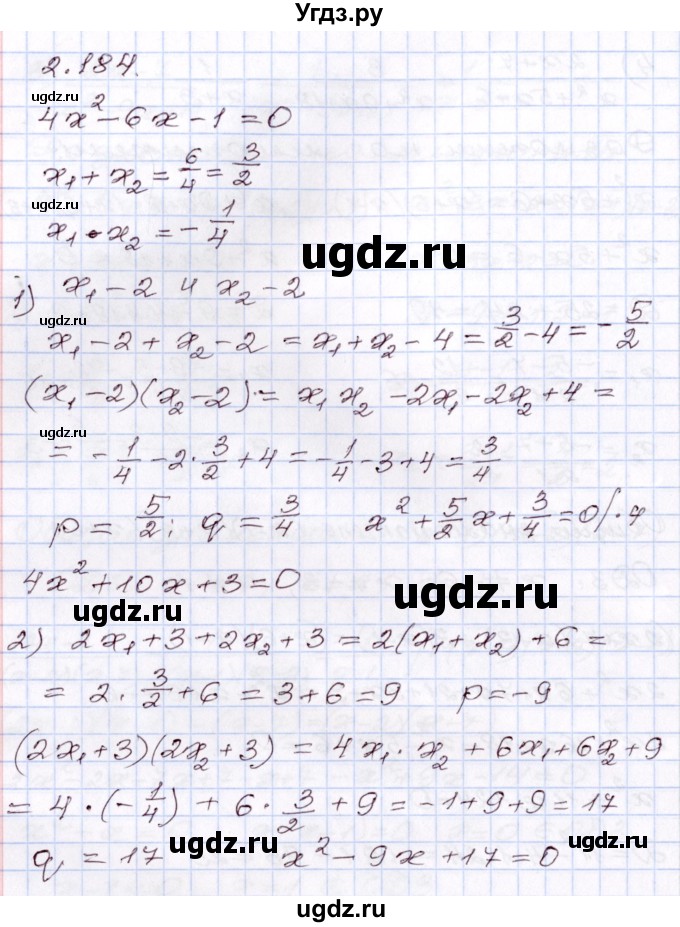 Угдз.ру
2.184.
ugdz.ru
4x² - 6x - 1 = 0
x₁ + x₂ = 6/4 = 3/2
ugdz.ru
x₁ · x₂ = - 1/4
ugdz.ru
1) x₁ - 2 и x₂ - 2
ugdz.ru
x₁ - 2 + x₂ - 2 = x₁ + x₂ - 4 = 3/2 - 4 = - 5/2
(x₁ - 2)(x₂ - 2) = x₁ x₂ - 2x₁ - 2x₂ + 4 =
ugdz.ru
= - 1/4 - 2 · 3/2 + 4 = - 1/4 - 3 + 4 = 3/4
p = 5/2; q = 3/4 x² + 5/2 x + 3/4 = 0 /· 4
4x² + 10x + 3 = 0
ugdz.ru
ugdz.ru
2) 2x₁ + 3 + 2x₂ + 3 = 2(x₁ + x₂) + 6 =
= 2 · 3/2 + 6 = 3 + 6 = 9 p = -9
ugdz.ru
ugdz.ru
(2x₁ + 3)(2x₂ + 3) = 4x₁ · x₂ + 6x₁ + 6x₂ + 9
= 4 · (- 1/4) + 6 · 3/2 + 9 = -1 + 9 + 9 = 17
ugdz.ru
ugdz.ru
q = 17 x² - 9x + 17 = 0
ugdz.ru